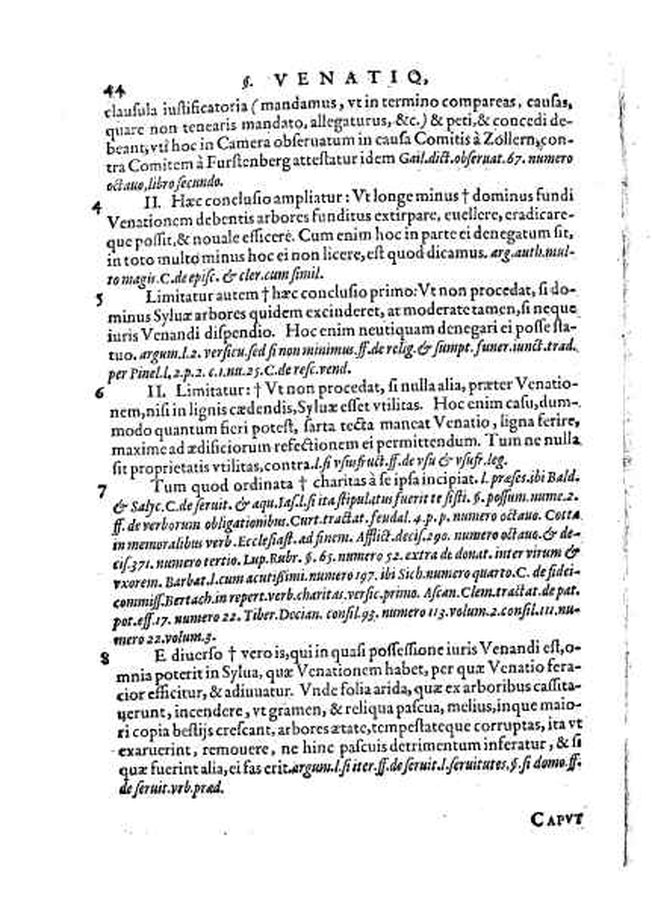 44 §. VENATIO,
clausula iustificatoria (mandamus, vt in termino compareas, causas,
quare non tenearis mandato, allegaturus, &c.) & peti, & concedi de-
beant, vti hoc in Camera obseruatum in causa Comitis à Zollern, con-
tra Comitem à Furstenberg attestatur idem Gail. dict. obseruat. 67. numero
octauo, libro secundo.
4 II. Hæc conclusio ampliatur: Vt longe minus † dominus fundi
Venationem debentis arbores funditus extirpare, euellere, eradicare-
que possit, & nouale efficere. Cum enim hoc in parte ei denegatum sit,
in toto multo minus hoc ei non licere, est quod dicamus. arg. auth. mul-
to magis. C. de episc. & cler. cum simil.
5 Limitatur autem † hæc conclusio primo: Vt non procedat, si do-
minus Syluæ arbores quidem excinderet, at moderate tamen, si neque
iuris Venandi dispendio. Hoc enim neutiquam denegari ei posse sta-
tuo. argum. l. 2. versicu. sed si non minimus. ff. de relig. & sumpt. funer. iunct. trad.
per Pinel. l. 2. p. 2. c. 1. nu. 25. C. de resc. vend.
6 II. Limitatur: † Vt non procedat, si nulla alia, præter Venatio-
nem, nisi in lignis cædendis, Syluæ esset vtilitas. Hoc enim casu, dum-
modo quantum fieri potest, sarta tecta maneat Venatio, ligna ferire,
maxime ad ædificiorum refectionem ei permittendum. Tum ne nulla
sit proprietatis vtilitas, contra. l. si vsusfruct. ff. de vsu & vsufr. leg.
7 Tum quod ordinata † charitas à se ipsa incipiat. l. præses. ibi Bald.
& Salyc. C. de seruit. & aqu. Ias. l. si ita stipulatus fuerit te sisti. §. possum. nume. 2.
ff. de verborum obligationibus. Curt. tractat. feudal. 4. p. p. numero octauo. Cotta
in memoralibus verb. Ecclesiast. ad finem. Afflict. decis. 290. numero octauo. & de-
cis. 371. numero tertio. Lup. Rubr. §. 65. numero 52. extra de donat. inter virum &
vxorem. Barbat. l. cum acutissimi. numero 197. ibi Sich. numero quarto. C. de fidei-
commiss. Bertach. in repert. verb. charitas. versic. primo. Ascan. Clem. tractat. de pat.
pot. eff. 17. numero 22. Tiber. Decian. consil. 93. numero 113. volum. 2. consil. 111. nu-
mero 22. volum. 3.
8 E diuerso † vero is, qui in quasi possessione iuris Venandi est, o-
mnia poterit in Sylua, quæ Venationem habet, per quæ Venatio fera-
cior efficitur, & adiuuatur. Vnde folia arida, quæ ex arboribus cassita-
uerunt, incendere, vt gramen, & reliqua pascua, melius, inque maio-
ri copia bestijs crescant, arbores ætate, tempestateque corruptas, ita vt
exaruerint, remouere, ne hinc pascuis detrimentum inferatur, & si
quæ fuerint alia, ei fas erit. argum. l. si iter. ff. de seruit. l. seruitutes. §. si domo. ff.
de seruit. vrb. præd.
CAPVT